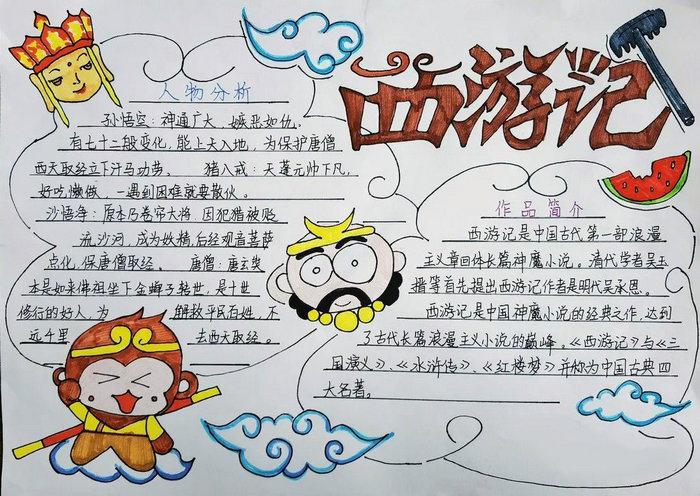 西游记
人物分析
孙悟空：神通广大、嫉恶如仇，
有七十二般变化，能上天入地，为保护唐僧
西天取经立下汗马功劳。 猪八戒：天蓬元帅下凡，
好吃懒做，一遇到困难就要散伙。
沙悟净：原本乃卷帘大将，因犯错被贬
流沙河，成为妖精，后经观音菩萨
点化，保唐僧取经。 唐僧：唐玄奘
本是如来佛祖坐下金蝉子转世，是十世
修行的好人，为 解救平民百姓，不
远千里 去西天取经。
作品简介
西游记是中国古代第一部浪漫
主义章回体长篇神魔小说。清代学者吴玉
搢等首先提出西游记作者是明代吴承恩。
西游记是中国神魔小说的经典之作，达到
了古代长篇浪漫主义小说的巅峰。《西游记》与《三
国演义》、《水浒传》、《红楼梦》并称为中国古典四
大名著。